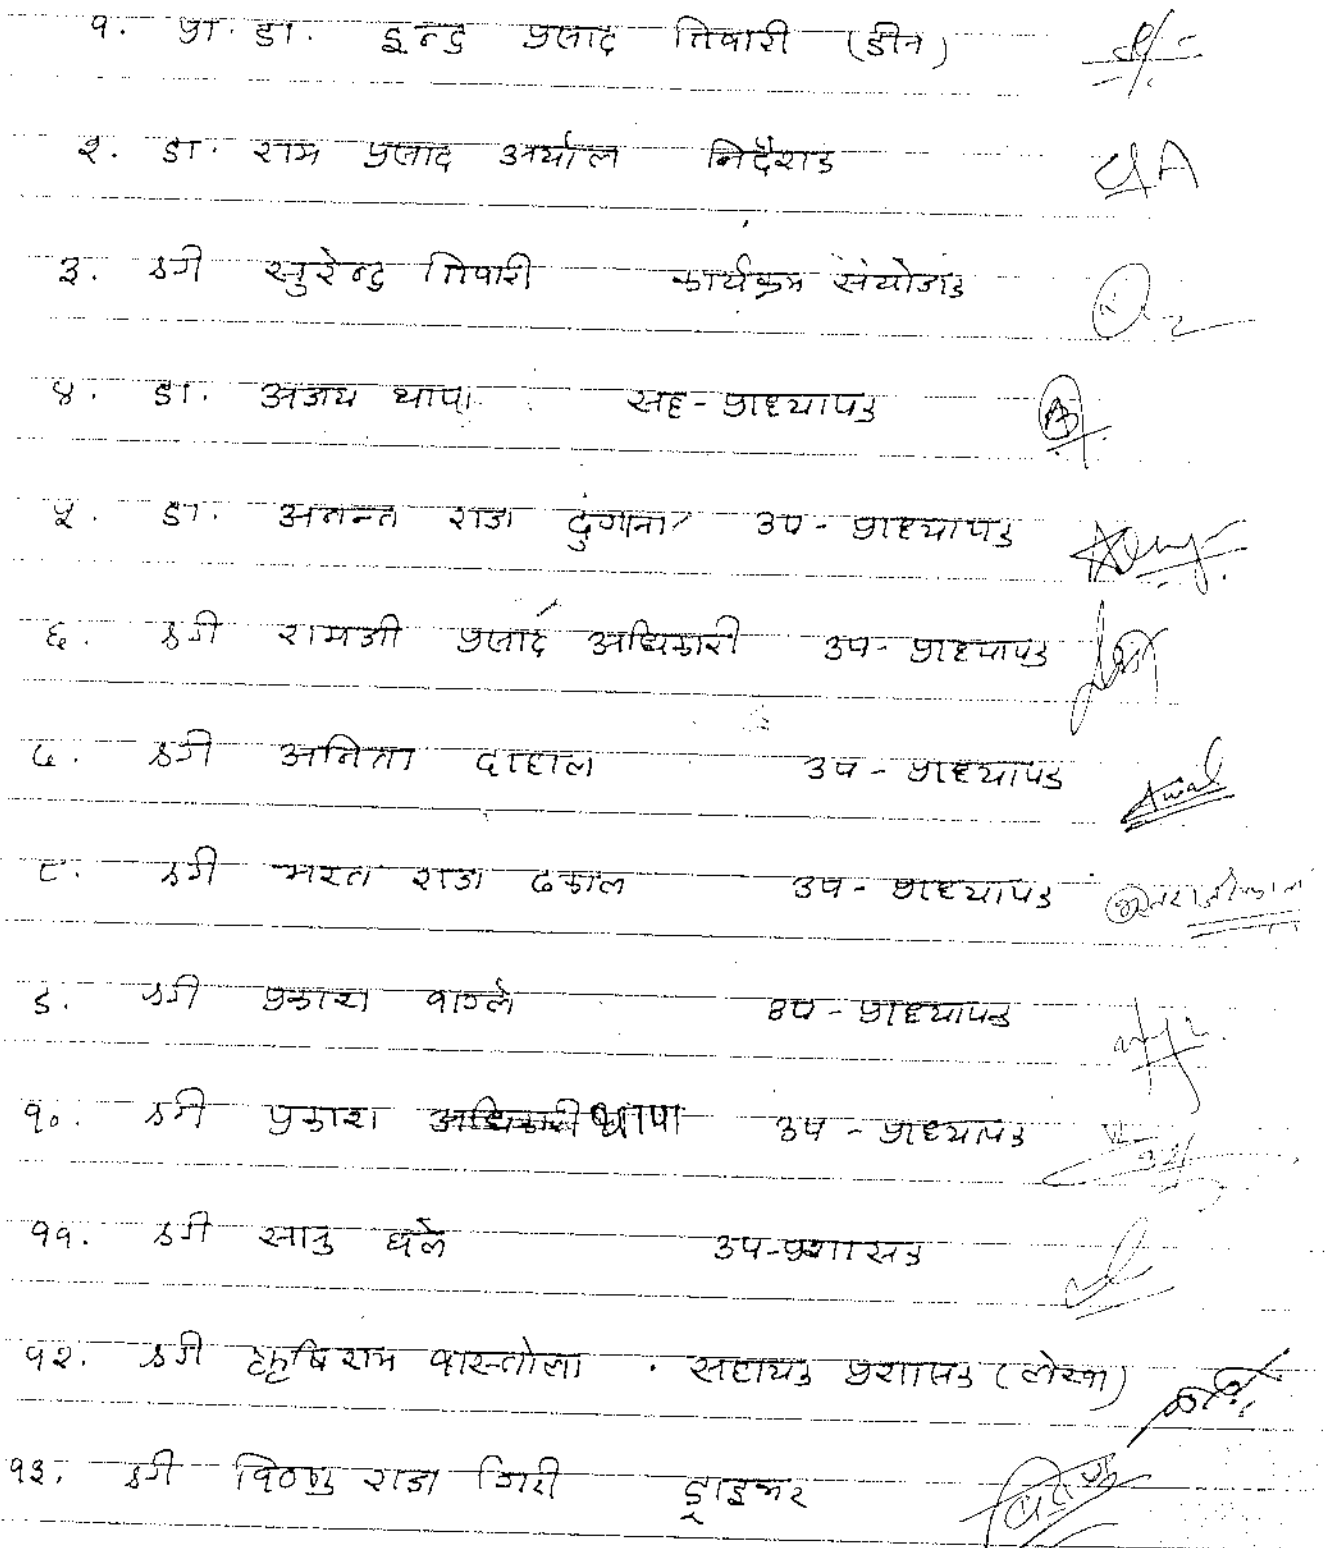 १. प्रा. डा. इन्द्र प्रसाद तिवारी (डीन)
२. डा. राम प्रसाद अर्याल निर्देशक
३. श्री सुरेन्द्र तिवारी कार्यक्रम संयोजक
४. डा. अजय थापा सह-प्राध्यापक
५. डा. अनन्त राज ढुंगाना उप-प्राध्यापक
६. श्री रामजी प्रसाद अधिकारी उप-प्राध्यापक
७. श्री अनिता दाहाल उप-प्राध्यापक
८. श्री भरत राज ढकाल उप-प्राध्यापक
९. श्री प्रकाश वाग्ले उप-प्राध्यापक
१०. श्री प्रकाश अधिकारी थापा उप-प्राध्यापक
११. श्री सानु घले उप-प्रशासक
१२. श्री कृषिराम वास्तोला सहायक प्रशासक (लेखा)
१३. श्री विष्णु राज गिरी ड्राइभर